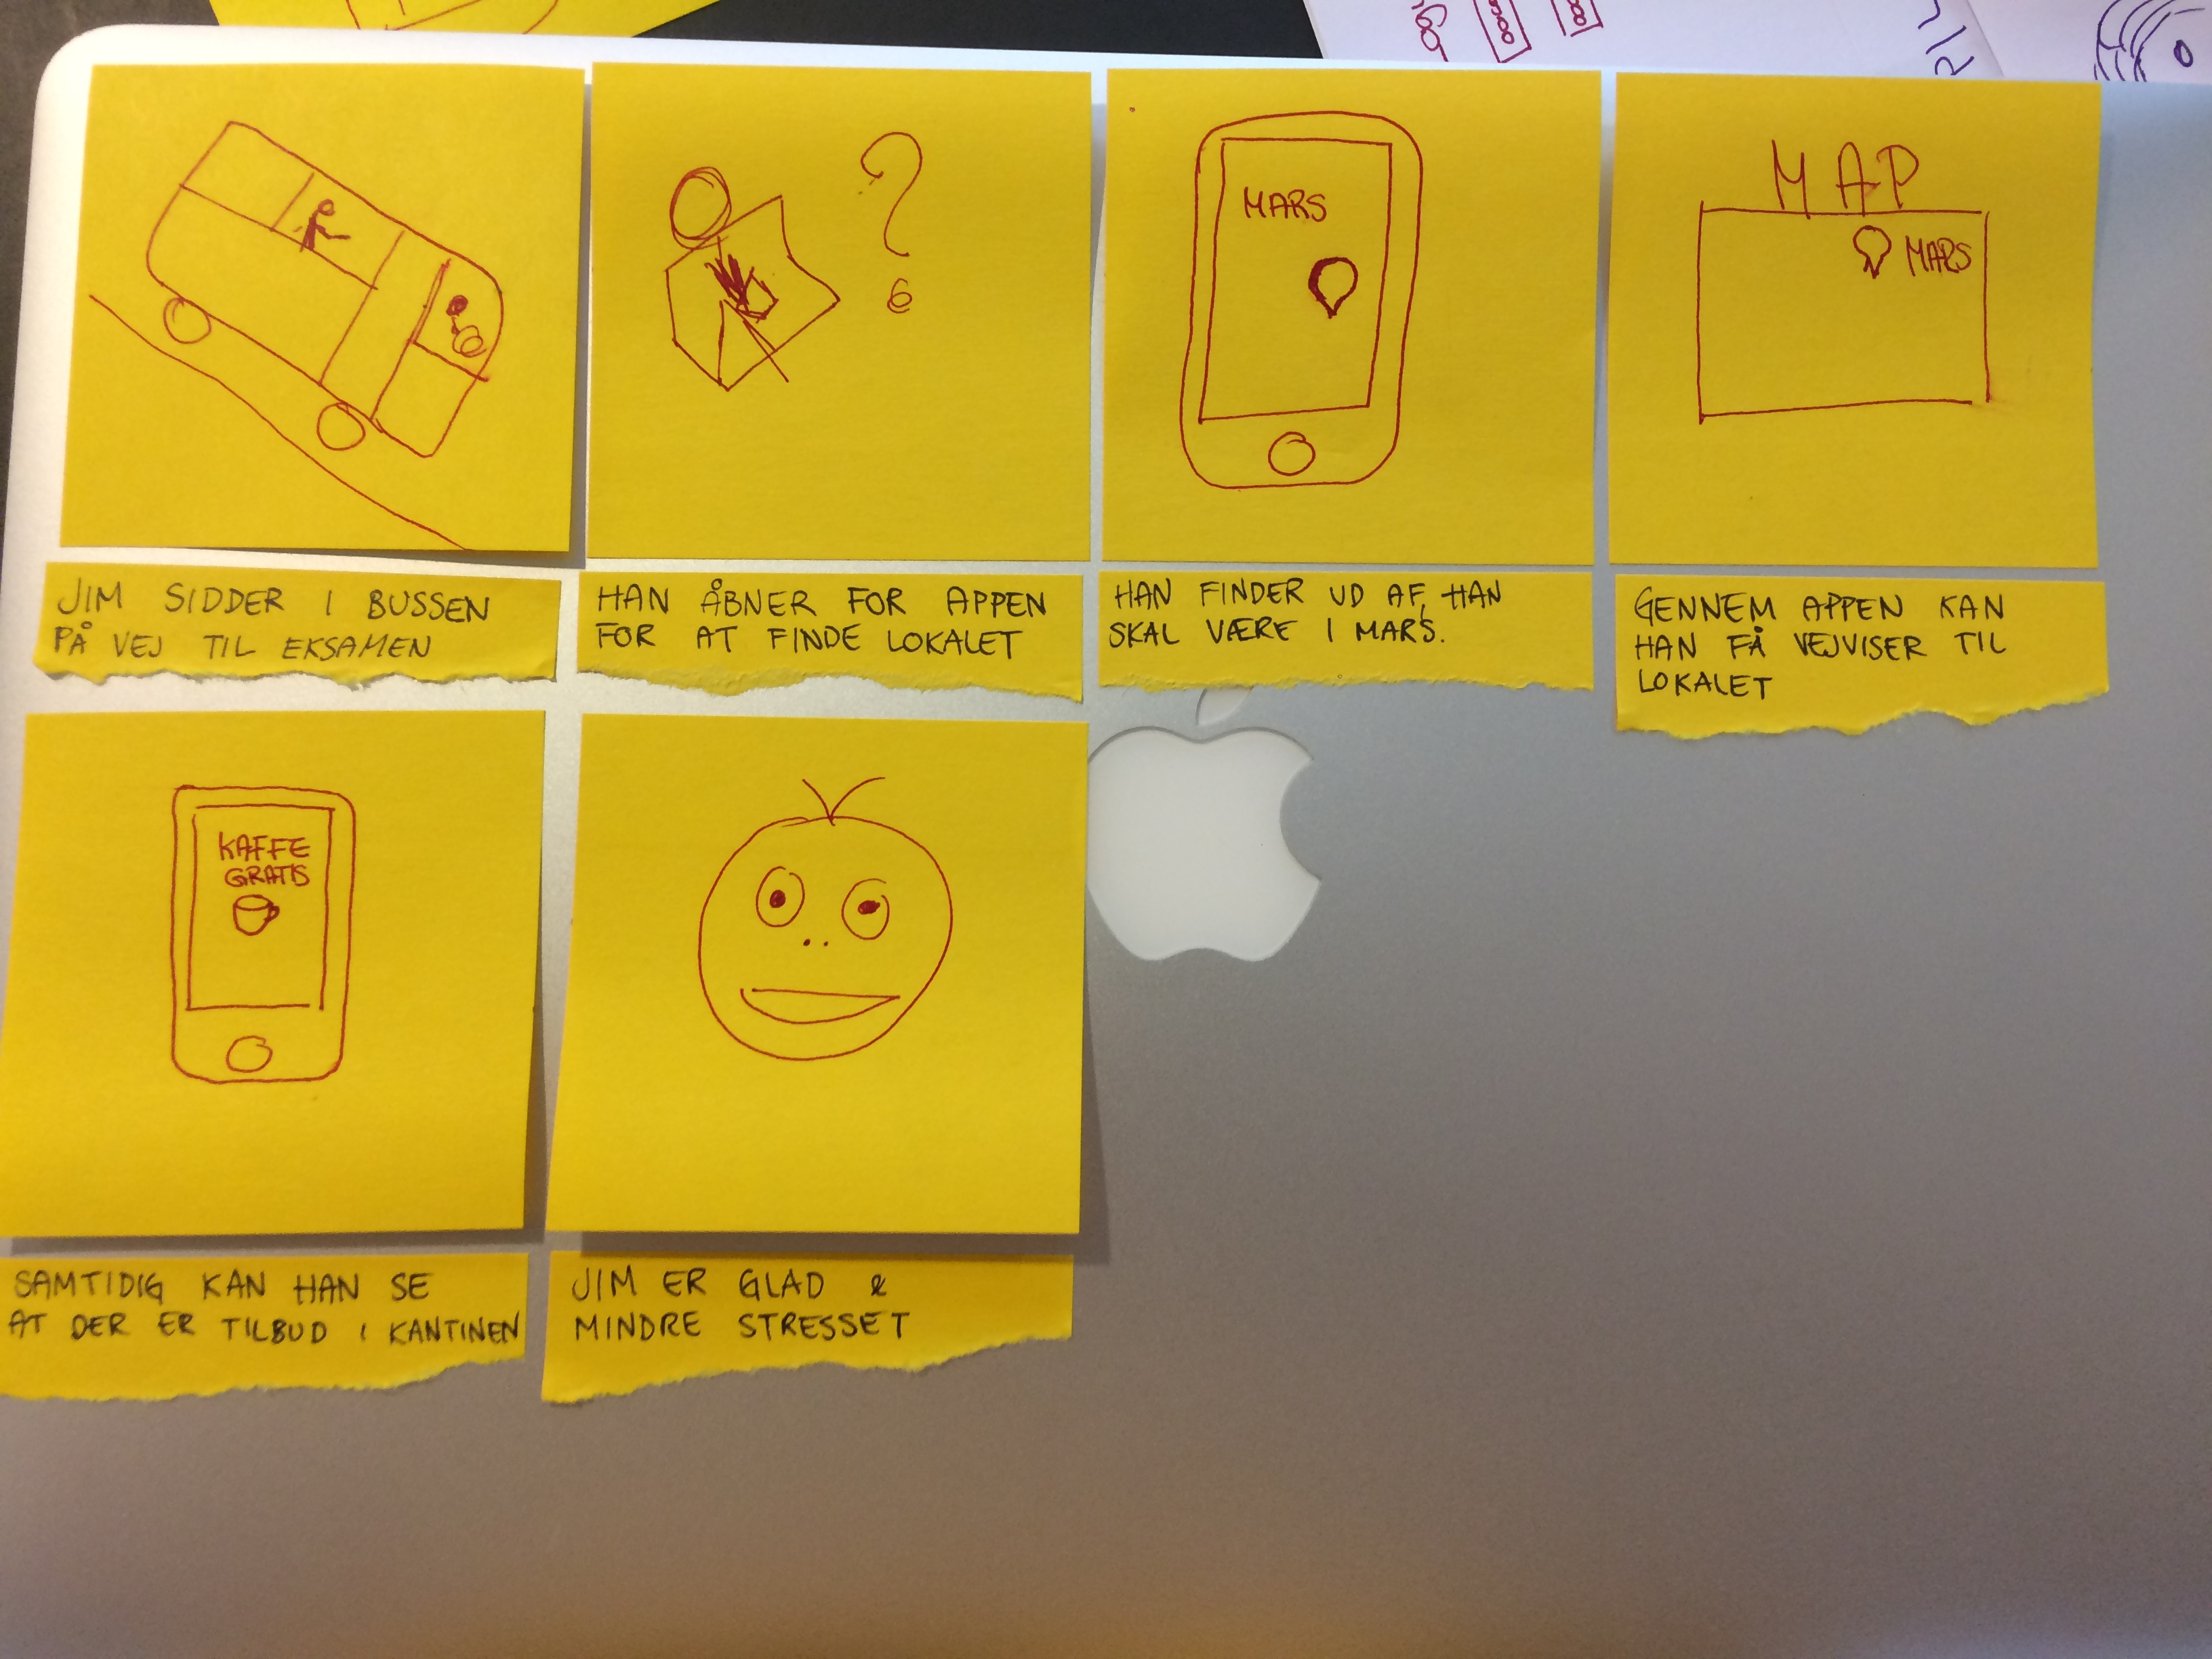 MARS
MAP
MARS
JIM SIDDER I BUSSEN
PÅ VEJ TIL EKSAMEN
HAN ÅBNER FOR APPEN
FOR AT FINDE LOKALET
HAN FINDER UD AF, HAN
SKAL VÆRE I MARS.
GENNEM APPEN KAN
HAN FÅ VEJVISER TIL
LOKALET
KAFFE
GRATIS
SAMTIDIG KAN HAN SE
AT DER ER TILBUD I KANTINEN
JIM ER GLAD &
MINDRE STRESSET